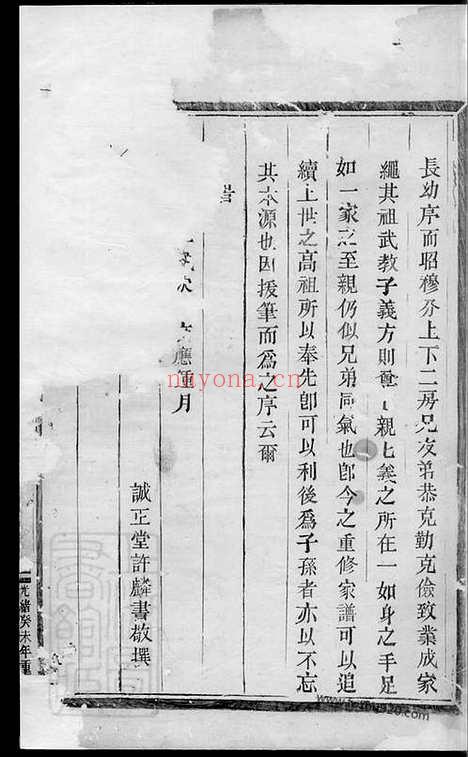 長幼序而昭穆分上下二房兄友弟恭克勤克儉致業成家
繩其祖武教子義方則親親義之所在一如身之手足
如一家之至親仍似兄弟同氣也卽今之重修家譜可以追
續上世之高祖所以奉先卽可以利後爲子孫者亦以不忘
其本源也因援筆而爲之序云爾
旹
歲次 應鍾月
誠正堂許麟書敬撰
光緒癸未年重
miyona.cn